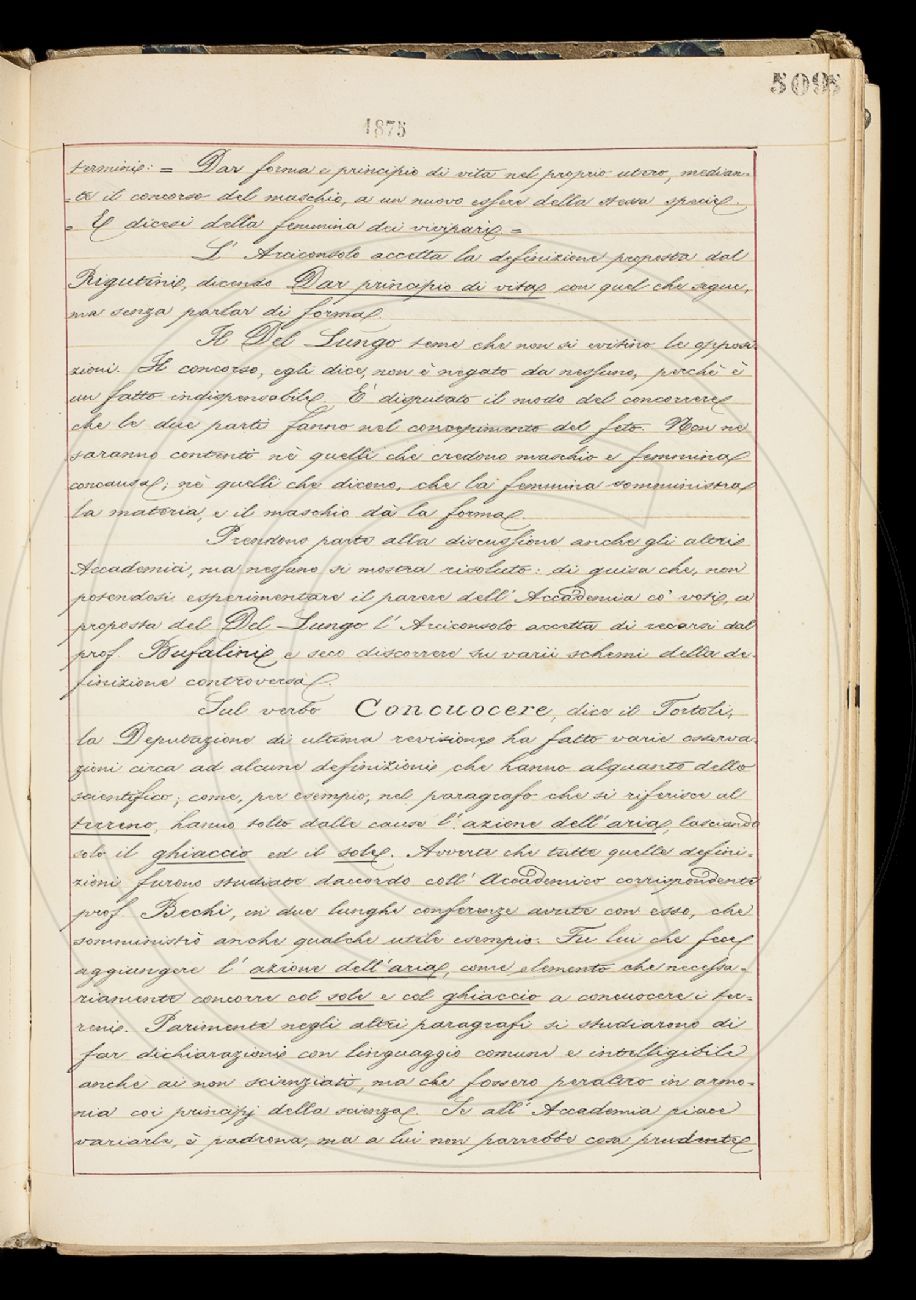 5095
1875
termini: = Dar forma e principio di vita nel proprio utero, median-
-te il concorso del maschio, a un nuovo essere della stessa specie.
= E dicesi della femmina dei vivipari =
L' Arciconsolo accetta la definizione proposta dal
Rigutini, dicendo Dar principio di vita con quel che segue,
ma senza parlar di forma.
Il Del Lungo teme che non si evitino le opposi-
zioni. Il concorso, egli dice, non è negato da nessuno, perchè è
un fatto indispensabile. È disputato il modo del concorrere
che le due parti fanno nel concepimento del feto. Non ne
saranno contenti nè quelli che credono maschio e femmina
concausa; nè quelli che dicono, che la femmina somministra
la materia, e il maschio dà la forma.
Prendono parte alla discussione anche gli altri
Accademici, ma nessuno si mostra risoluto: di guisa che, non
potendosi esperimentare il parere dell' Accademia co' voti, a
proposta del Del Lungo l' Arciconsolo accetta di recarsi dal
prof. Bufalini e seco discorrere su varii schemi della de-
finizione controversa.
Sul verbo Concuocere, dice il Tortoli,
la Deputazione di ultima revisione ha fatto varie osserva-
zioni circa ad alcune definizioni che hanno alquanto dello
scientifico; come, per esempio, nel paragrafo che si riferisce al
terreno, hanno tolto dalle cause l' azione dell' aria, lasciando
solo il ghiaccio ed il sole. Avverte che tutte quelle defini-
zioni furono studiate daccordo coll' Accademico corrispondente
prof. Bechi, in due lunghe conferenze avute con esso, che
somministrò anche qualche utile esempio: Fu lui che fece
aggiungere l' azione dell' aria, come elemento che necessa-
riamente concorre col sole e col ghiaccio a concuocere i ter-
reni. Parimente negli altri paragrafi si studiarono di
far dichiarazioni con linguaggio comune e intelligibile
anche ai non scienziati, ma che fossero peraltro in armo-
nia coi principj della scienza. Se all' Accademia piace
variarle, è padrona, ma a lui non parrebbe cosa prudente